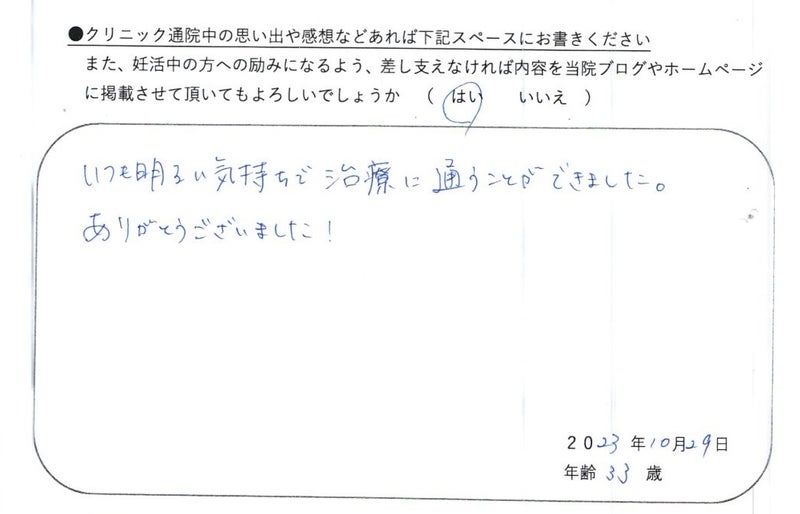 ●クリニック通院中の思い出や感想などあれば下記スペースにお書きください
また、妊活中の方への励みになるよう、差し支えなければ内容を当院ブログやホームページ
に掲載させて頂いてもよろしいでしょうか （ はい いいえ ）
いつも明るい気持ちで治療に通うことができました。
ありがとうございました！
2023年10月29日
年齢 33 歳